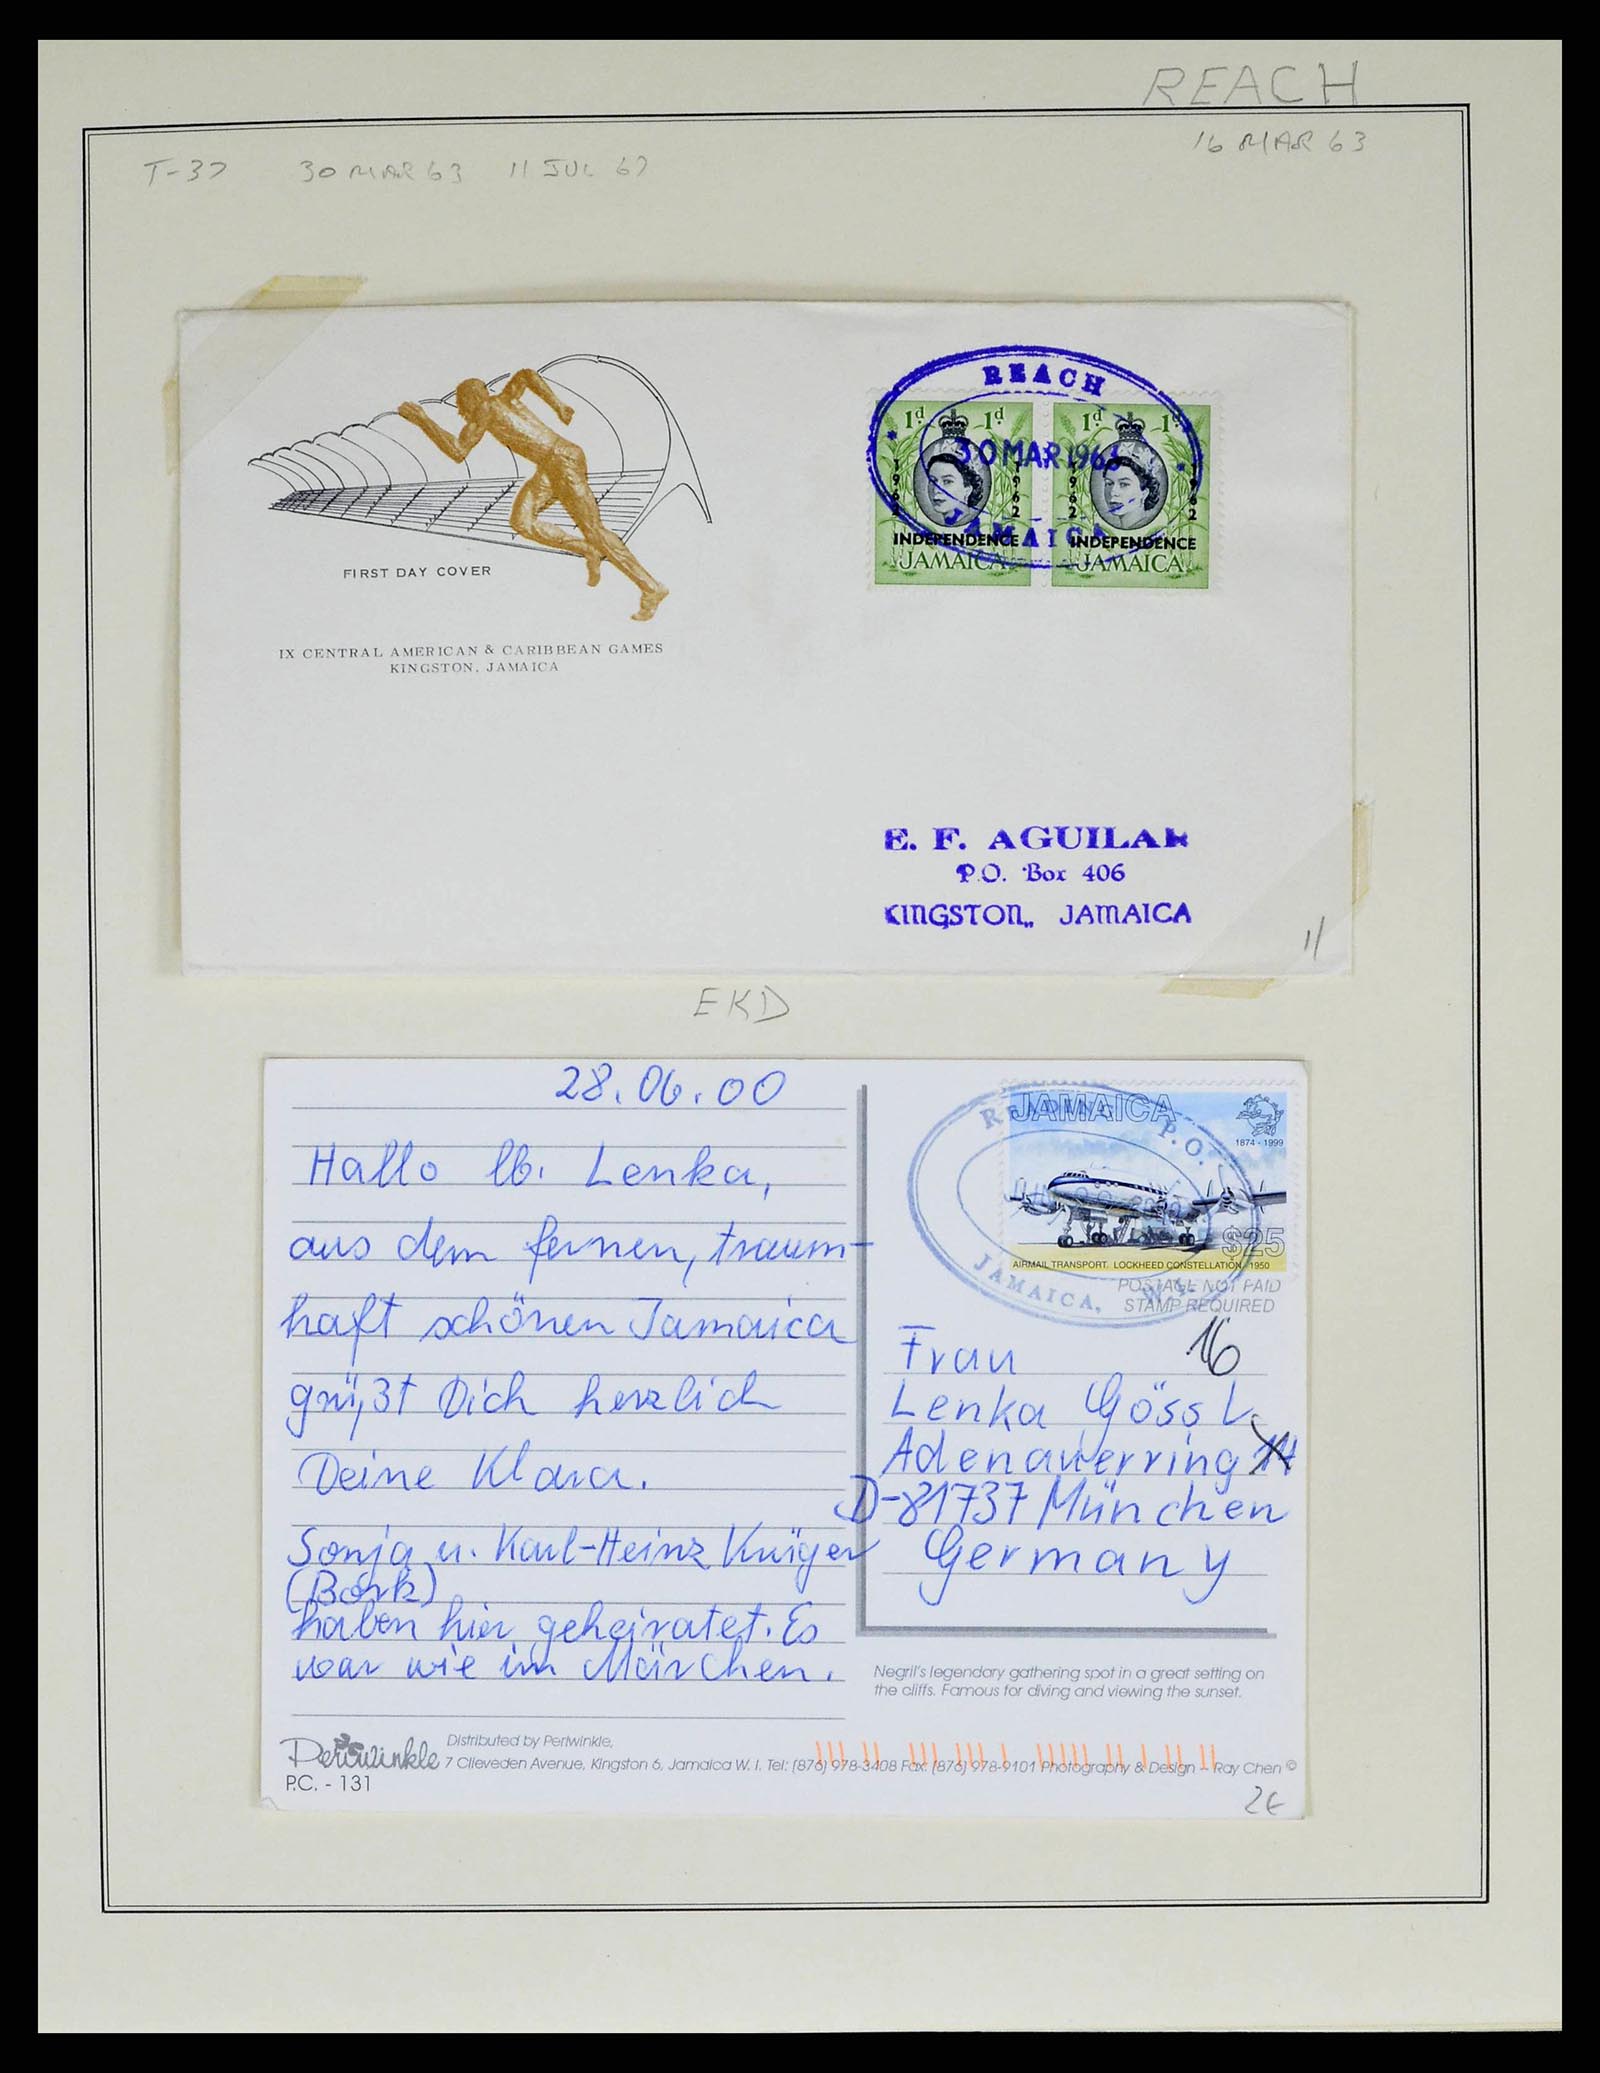 REACH
16 MAR 63
T-37 30 MAR 63 11 JUL 67
REACH
30 MAR 1963
JAMAICA
1d 1d
1962 1962
INDEPENDENCE
JAMAICA
1d 1d
1962 1962
INDEPENDENCE
JAMAICA
FIRST DAY COVER
IX CENTRAL AMERICAN & CARIBBEAN GAMES
KINGSTON, JAMAICA
E. F. AGUILAR
P.O. Box 406
KINGSTON, JAMAICA
11
EKD
28.06.00
Hallo lb. Lenka,
aus dem fernen, traum-
haft schönen Jamaica
grüßt Dich herzlich
Deine Klara.
Sonja u. Karl-Heinz Krüger
(Bork)
haben hier geheiratet. Es
war wie im Märchen.
JAMAICA
1874 - 1999
$25
AIRMAIL TRANSPORT. LOCKHEED CONSTELLATION - 1950
P.O.
JAMAICA, W.I.
POSTAGE NOT PAID
STAMP REQUIRED
16
Frau
Lenka Gössl
Adenauerring
D-81737 München
Germany
Negril's legendary gathering spot in a great setting on
the cliffs. Famous for diving and viewing the sunset.
Periwinkle
Distributed by Periwinkle,
7 Clieveden Avenue, Kingston 6, Jamaica W. I. Tel: (876) 978-3408 Fax: (876) 978-9101 Photography & Design - Ray Chen ©
P.C. - 131
2€